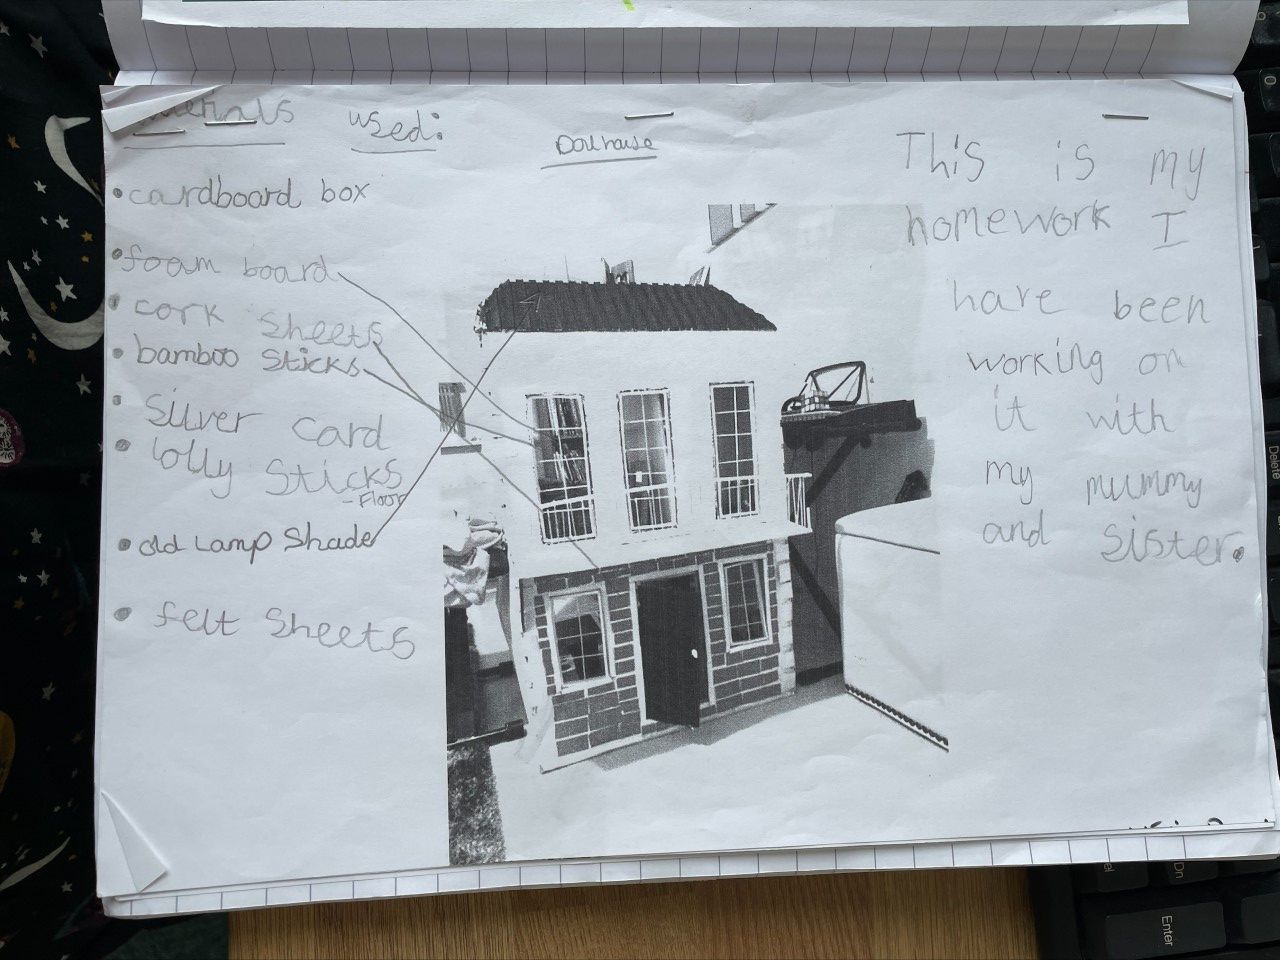 used:
• cardboard box
• foam board
• cork Sheets
• bamboo Sticks
• Silver Card
• lolly Sticks
- Floor
• old Lamp Shade
• felt Sheets
Dollhouse
This is my
homework I
have been
working on
it with
my mummy
and sister.
Delete
Enter
Dn